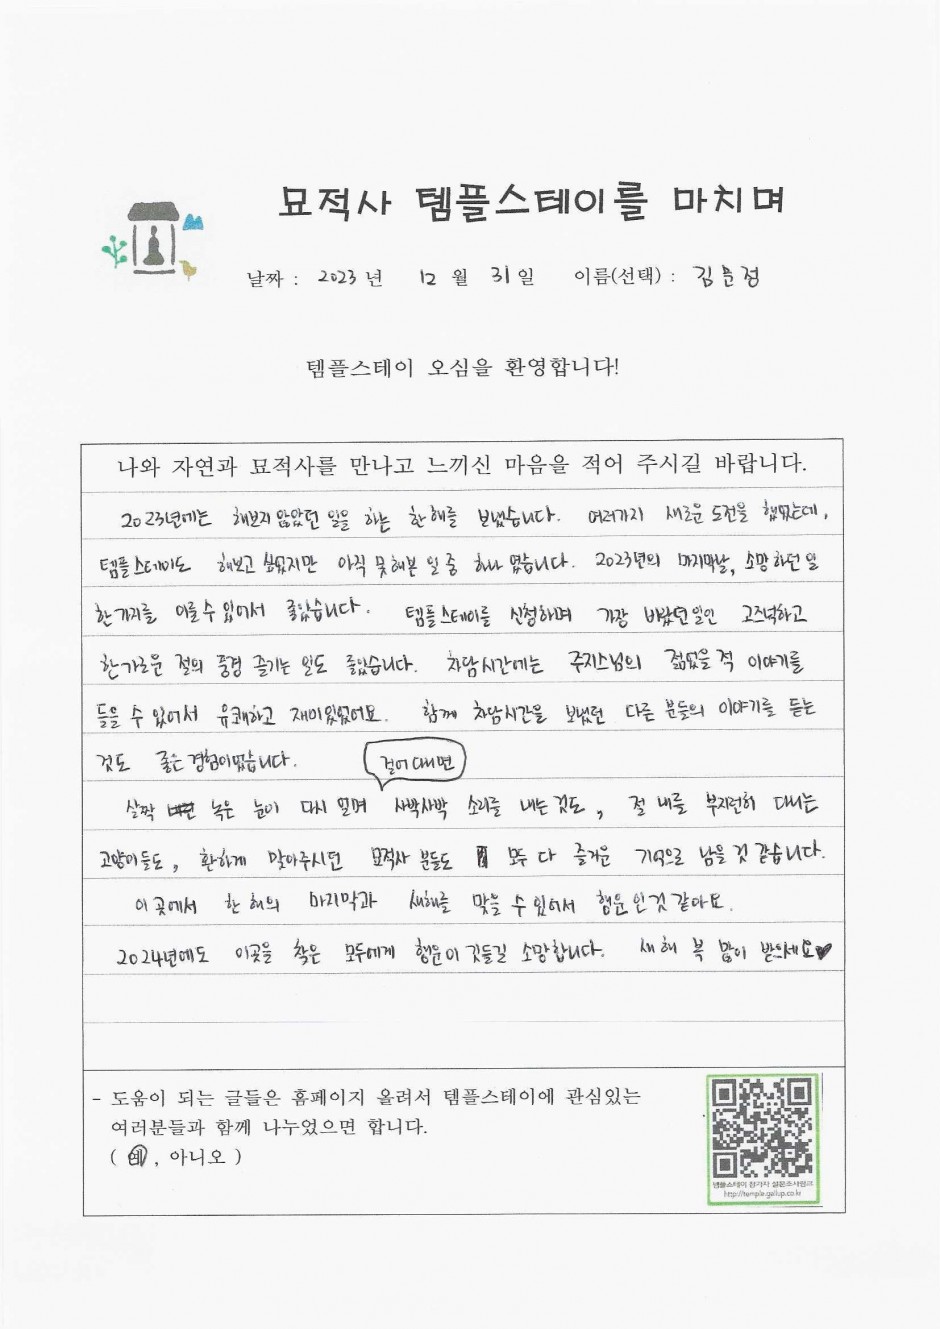 묘적사 템플스테이를 마치며
날짜 : 2023 년 12 월 31 일 이름(선택) : 김문정
템플스테이 오심을 환영합니다!
나와 자연과 묘적사를 만나고 느끼신 마음을 적어 주시길 바랍니다.
2023년에는 해보지 않았던 일을 하는 한 해를 보냈습니다. 여러가지 새로운 도전을 했었는데,
템플스테이도 해보고 싶었지만 아직 못해본 일 중 하나 였습니다. 2023년의 마지막날, 소망하던 일
한가지를 이룰 수 있어서 좋았습니다. 템플스테이를 신청하며 가장 바랐던 일인 고즈넉하고
한가로운 절의 풍경 즐기는 일도 좋았습니다. 차담시간에는 주지스님의 젊었을 적 이야기를
들을 수 있어서 유쾌하고 재미있었어요. 함께 차담시간을 보냈던 다른 분들의 이야기를 듣는
것도 좋은 경험이었습니다.
걸어다니면
살짝 녹은 눈이 다시 얼며 사박사박 소리를 내는 것도, 절 내를 부지런히 다니는
고양이들도, 환하게 맞아주시던 묘적사 분들도 모두 다 즐거운 기억으로 남을 것 같습니다.
이 곳에서 한 해의 마지막과 새해를 맞을 수 있어서 행운인 것 같아요.
2024년에도 이곳을 찾은 모두에게 행운이 깃들길 소망합니다. 새해 복 많이 받으세요♥
- 도움이 되는 글들은 홈페이지 올려서 템플스테이에 관심있는
여러분들과 함께 나누었으면 합니다.
( 예 , 아니오 )
템플스테이 참가자 설문조사링크
http://temple.gallup.co.kr